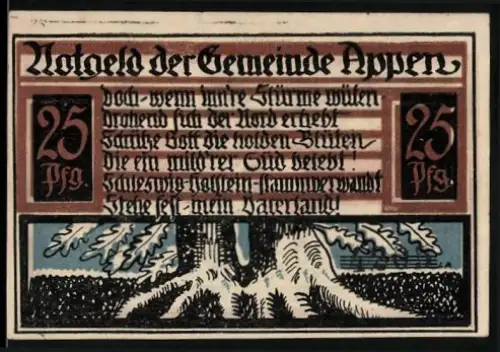 Notgeld der Gemeinde Appen
25 Pfg.
Doch wenn inn're Stürme wüten
drohend sich der Nord erhebt
Schütze Gott die holden Blüten
die ein mild'rer Süd belebt!
Schleswig-Holstein stammverwandt
Stehe fest mein Vaterland!
25 Pfg.